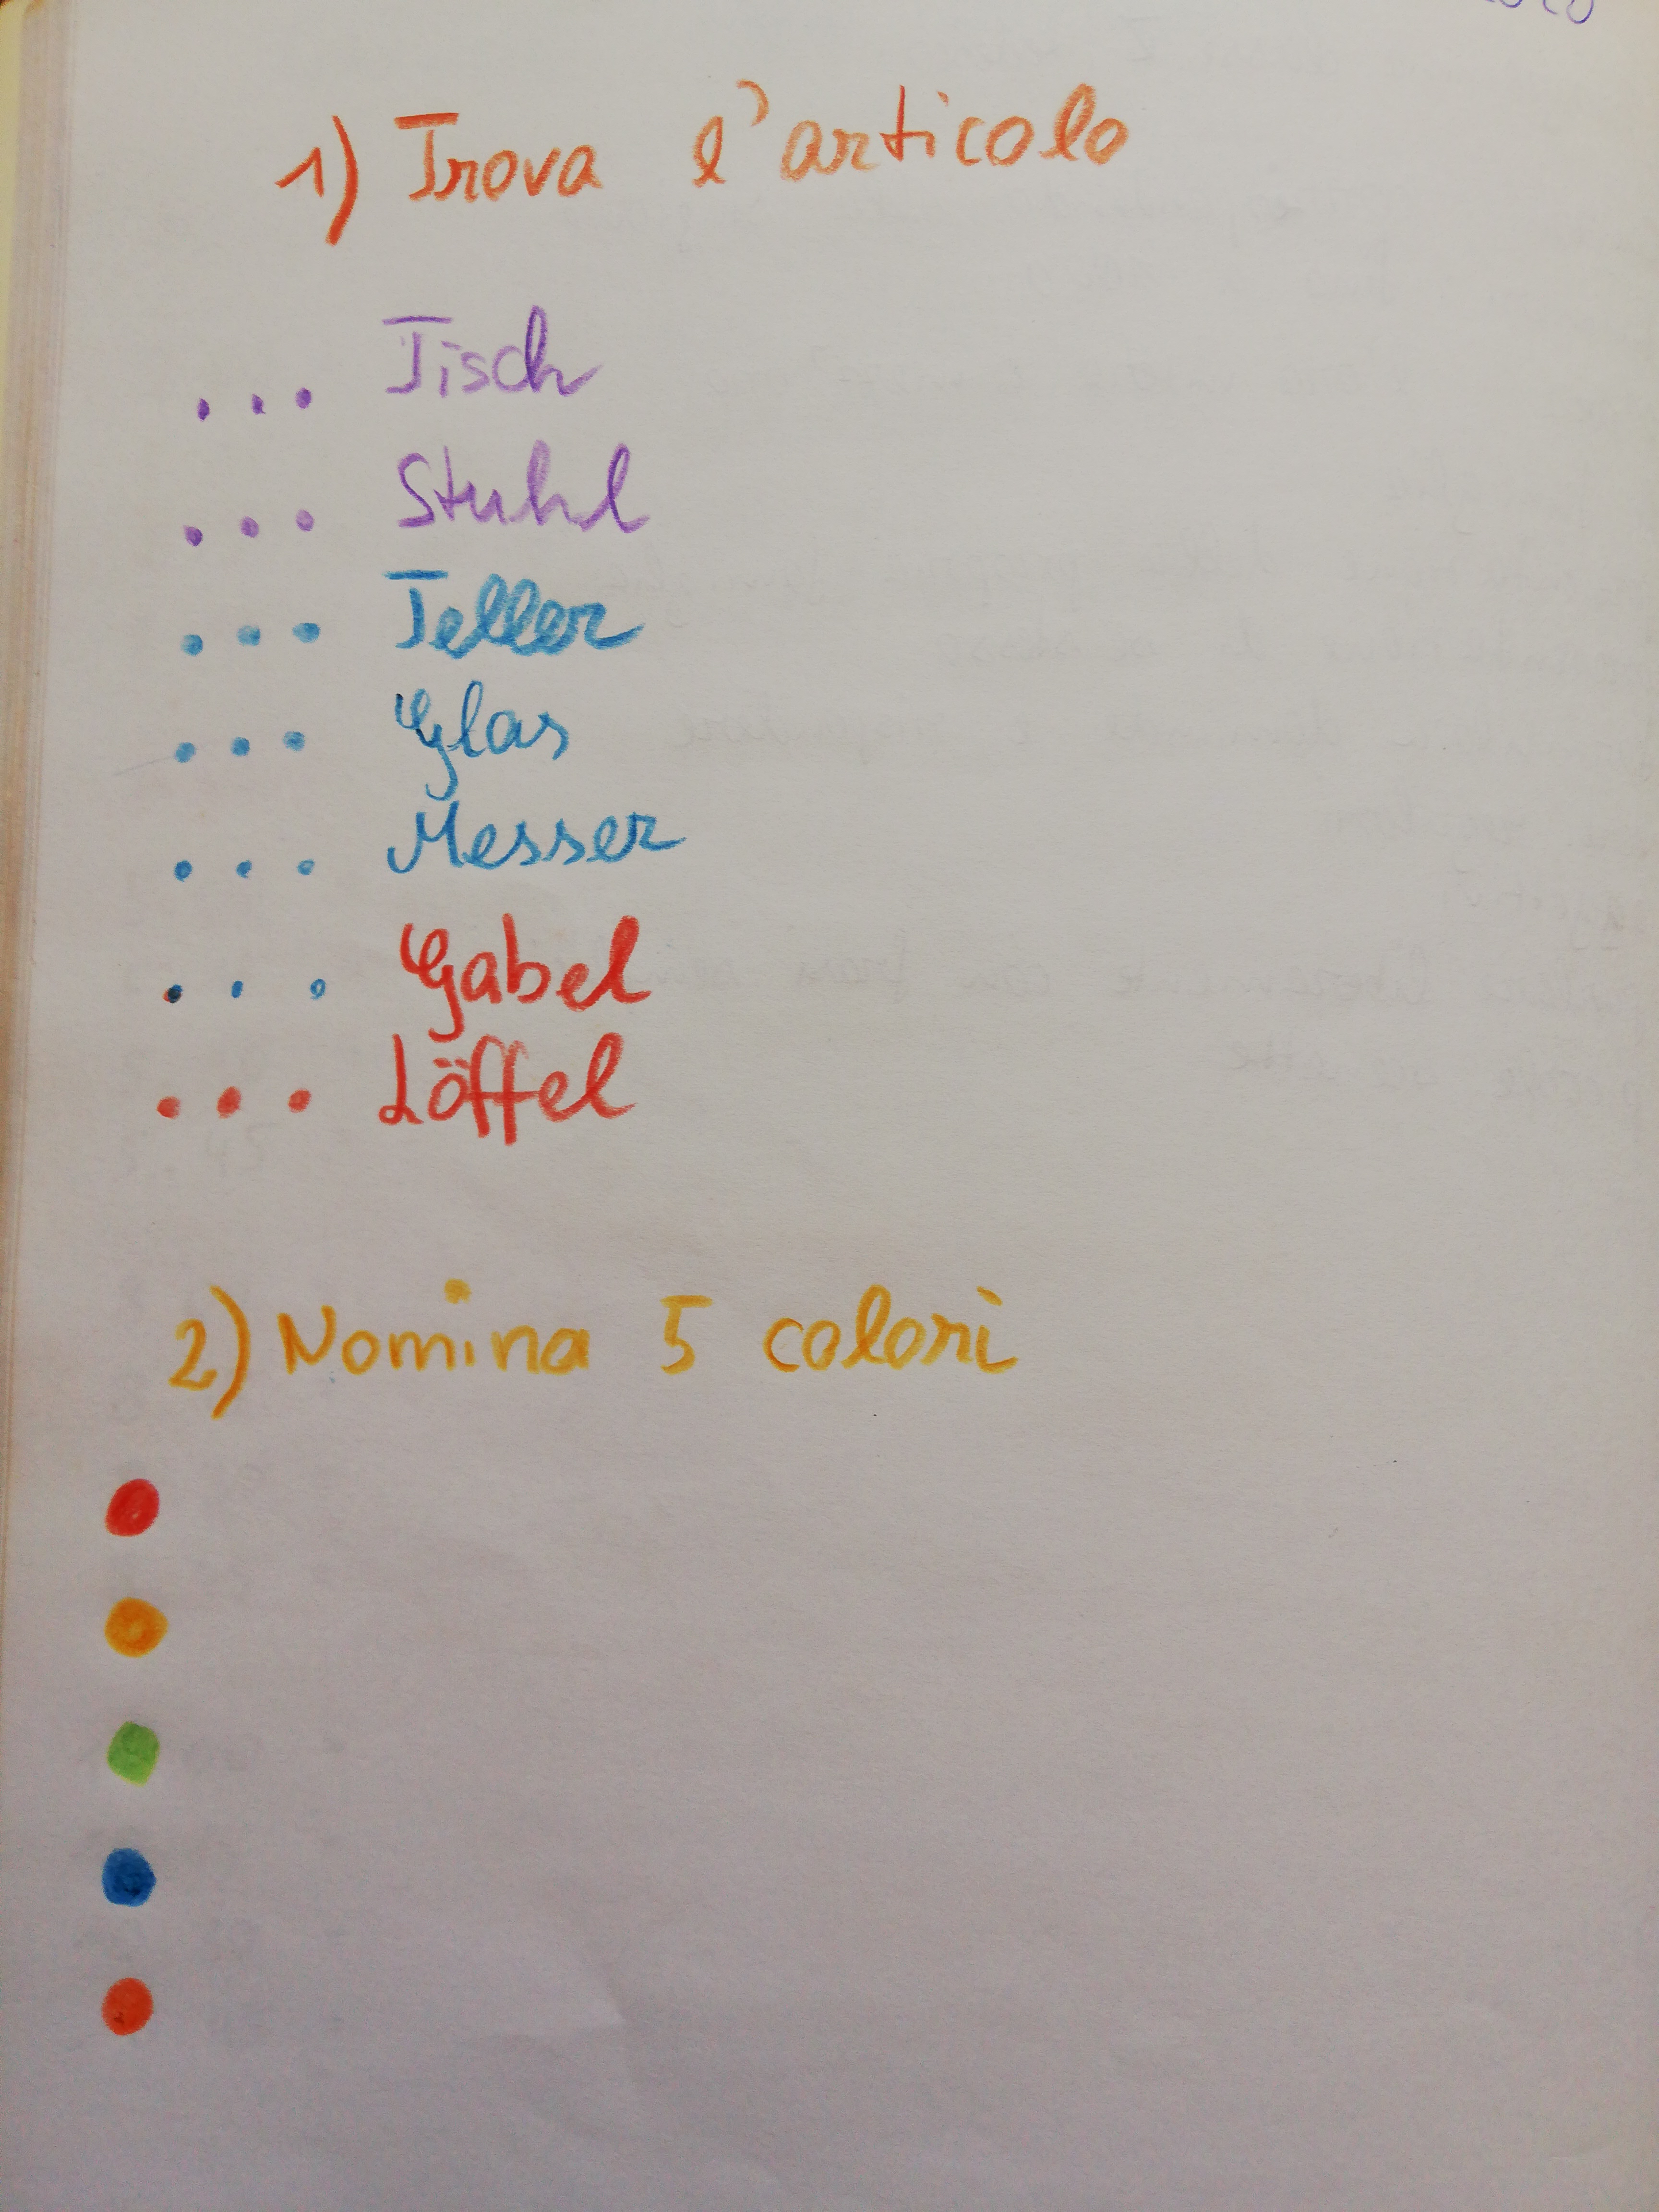 1) Trova l'articolo
... Tisch
... Stuhl
... Teller
... Glas
... Messer
... Gabel
... Löffel
2) Nomina 5 colori